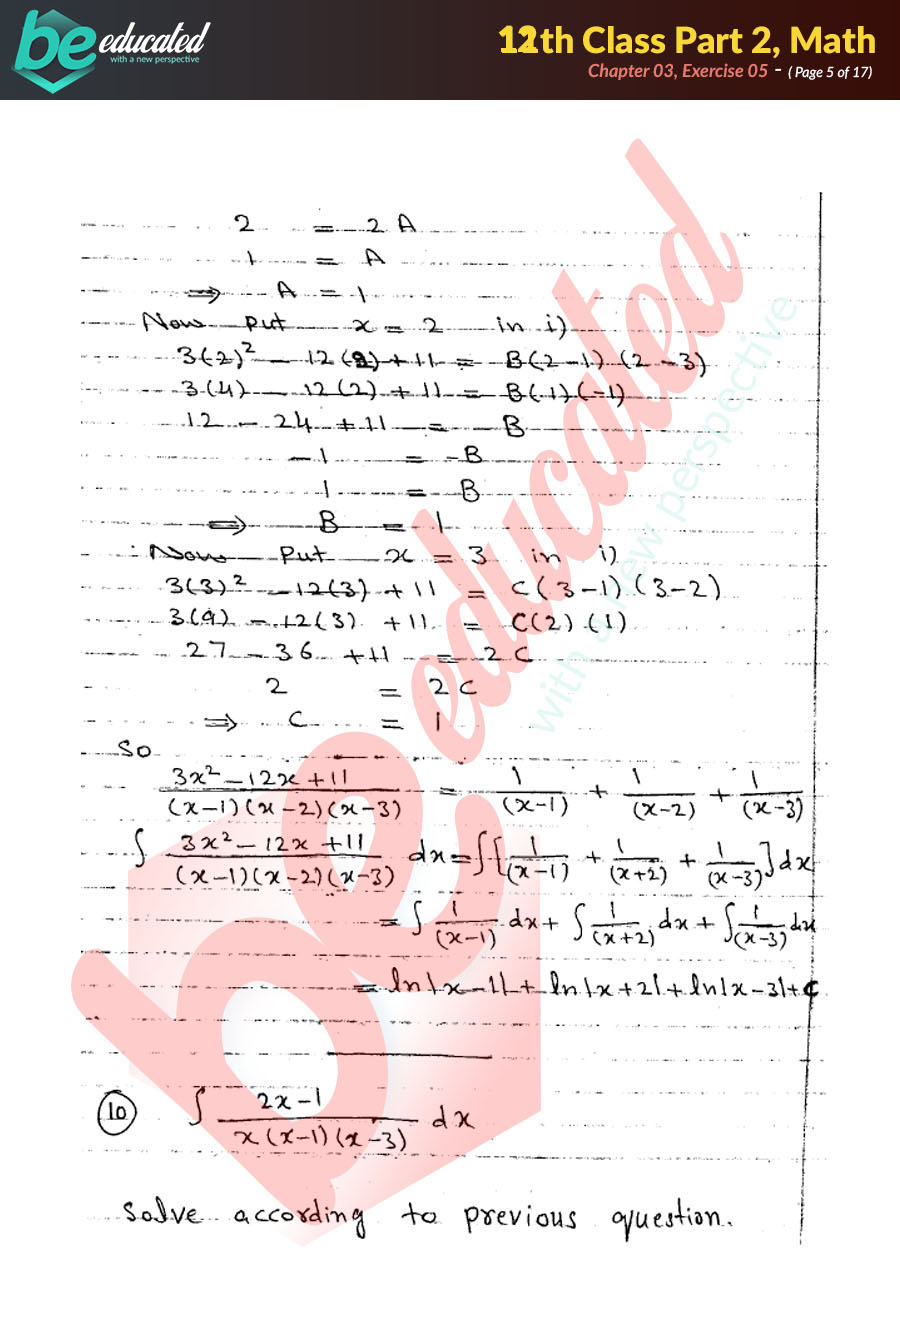 be educated
with a new perspective
12th Class Part 2, Math
Chapter 03, Exercise 05 - ( Page 5 of 17)
2 = 2A
1 = A
⇒ A = 1
Now put x = 2 in i)
3(2)² - 12(2) + 11 = B(2-1)(2-3)
3(4) - 12(2) + 11 = B(1)(-1)
12 - 24 + 11 = -B
-1 = -B
1 = B
⇒ B = 1
Now Put x = 3 in i)
3(3)² - 12(3) + 11 = C(3-1)(3-2)
3(9) - 12(3) + 11 = C(2)(1)
27 - 36 + 11 = 2C
2 = 2C
⇒ C = 1
So
3x² - 12x + 11 / (x-1)(x-2)(x-3) = 1/(x-1) + 1/(x-2) + 1/(x-3)
∫ 3x² - 12x + 11 / (x-1)(x-2)(x-3) dx = ∫[1/(x-1) + 1/(x+2) + 1/(x-3)]dx
= ∫ 1/(x-1) dx + ∫ 1/(x+2) dx + ∫ 1/(x-3) dx
= ln|x-1| + ln|x+2| + ln|x-3| + c
10 ∫ 2x-1 / x(x-1)(x-3) dx
Solve according to previous question.
be educated
with a new perspective